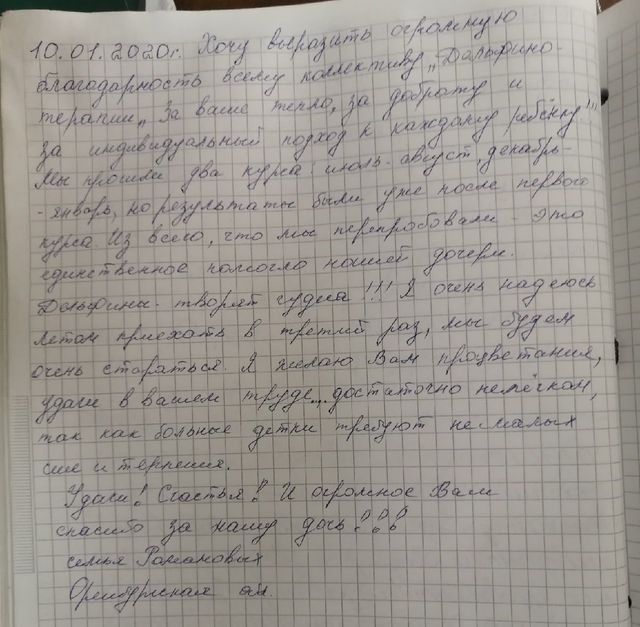 10.01.2020г. Хочу выразить огромную
благодарность всему коллективу „Дельфино-
терапии„ За ваше тепло, за доброту и
за индивидуальный подход к каждому ребёнку!!!
Мы прошли два курса: июль-август, декабрь-
-январь, но результаты были уже после первого
курса. Из всего, что мы перепробовали - это
единственное помогло нашей дочери.
Дельфины - творят чудеса!!! Я очень надеюсь
летом приехать в третий раз, мы будем
очень стараться. Я желаю Вам процветания,
удачи в вашем труде,... достаточно нелёгком,
так как больные детки требуют не малых
сил и терпения.
Удачи! Счастья! И огромное Вам
спасибо за нашу дочь!!!
семья Романовых
Оренбургская об.